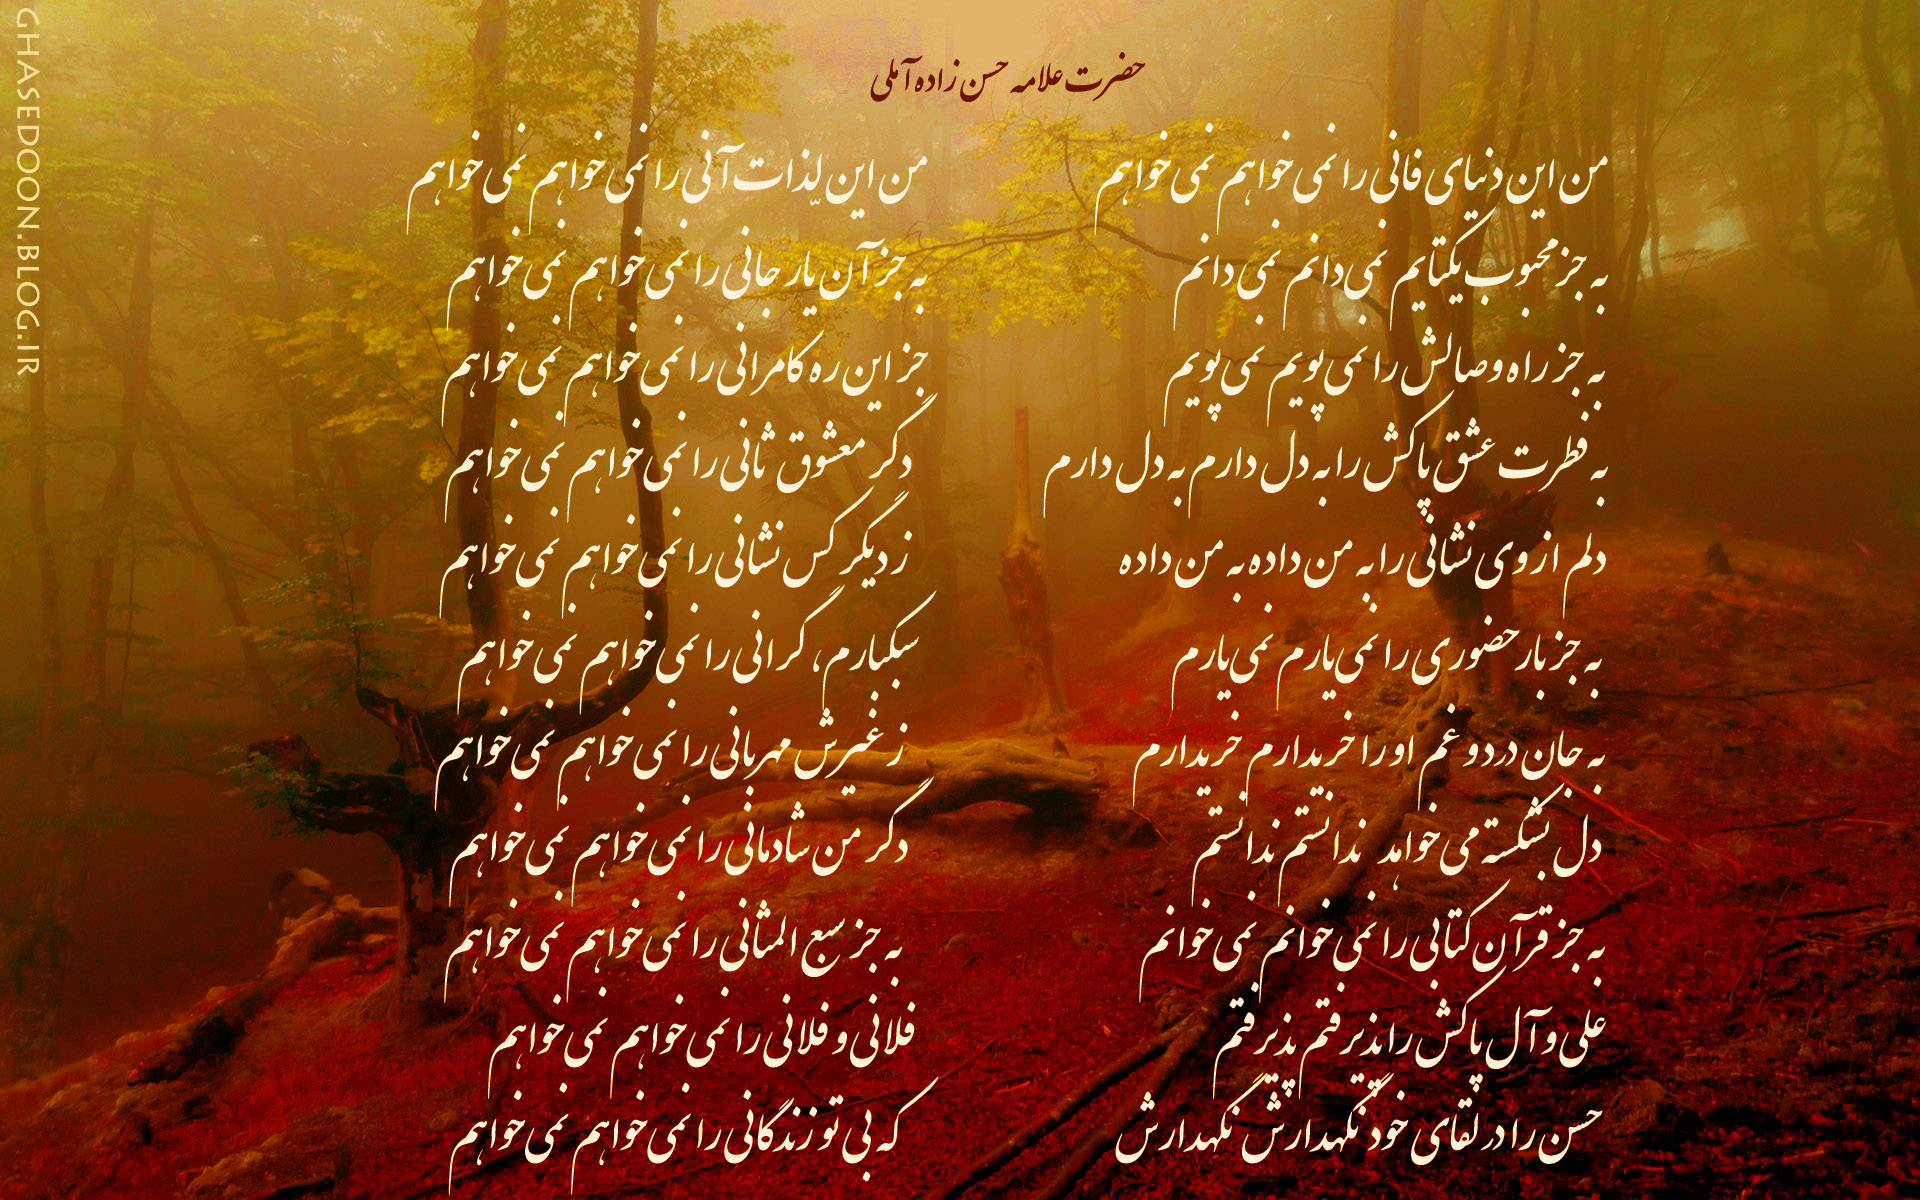 حضرت علامه حسن زاده آملی
من این دنیای فانی را نمی خواهم نمی خواهم
من این لذّات آنی را نمی خواهم نمی خواهم
به جز محبوب یکتایم نمی دانم نمی دانم
به جز آن یار جانی را نمی خواهم نمی خواهم
به جز راه وصالش را نمی پویم نمی پویم
جز این ره کامرانی را نمی خواهم نمی خواهم
به فطرت عشق پاکش را به دل دارم به دل دارم
دگر معشوق ثانی را نمی خواهم نمی خواهم
دلم از وی نشانی را به من داده به من داده
ز دیگر کس نشانی را نمی خواهم نمی خواهم
به جز بار حضوری را نمی یارم نمی یارم
سبکبارم، گرانی را نمی خواهم نمی خواهم
به جان درد و غم او را خریدارم خریدارم
ز غیرش مهربانی را نمی خواهم نمی خواهم
دل بشکسته می خواهد ندانستم ندانستم
دگر من شادمانی را نمی خواهم نمی خواهم
به جز قرآن کتابی را نمی خوانم نمی خوانم
به جز سبع المثانی را نمی خواهم نمی خواهم
علی و آل پاکش را پذیرفتم پذیرفتم
فلانی و فلانی را نمی خواهم نمی خواهم
حسن را در لقای خود نگهدارش نگهدارش
که بی تو زندگانی را نمی خواهم نمی خواهم
GHASEDOON.BLOG.IR